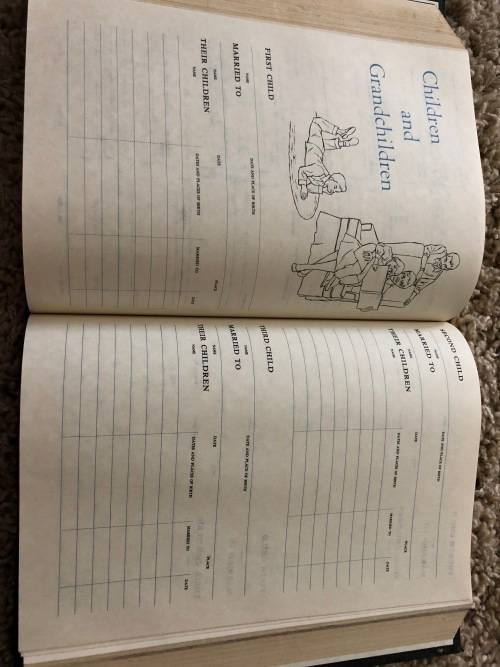 Children
and
Grandchildren
FIRST CHILD
NAME DATE AND PLACE OF BIRTH
MARRIED TO
NAME DATE PLACE
THEIR CHILDREN
NAME DATES AND PLACES OF BIRTH MARRIED TO DATE
SECOND CHILD
NAME DATE AND PLACE OF BIRTH
MARRIED TO
NAME DATE PLACE
THEIR CHILDREN
NAME DATES AND PLACES OF BIRTH MARRIED TO DATE
THIRD CHILD
NAME DATE AND PLACE OF BIRTH
MARRIED TO
NAME DATE PLACE
THEIR CHILDREN
NAME DATES AND PLACES OF BIRTH MARRIED TO DATE